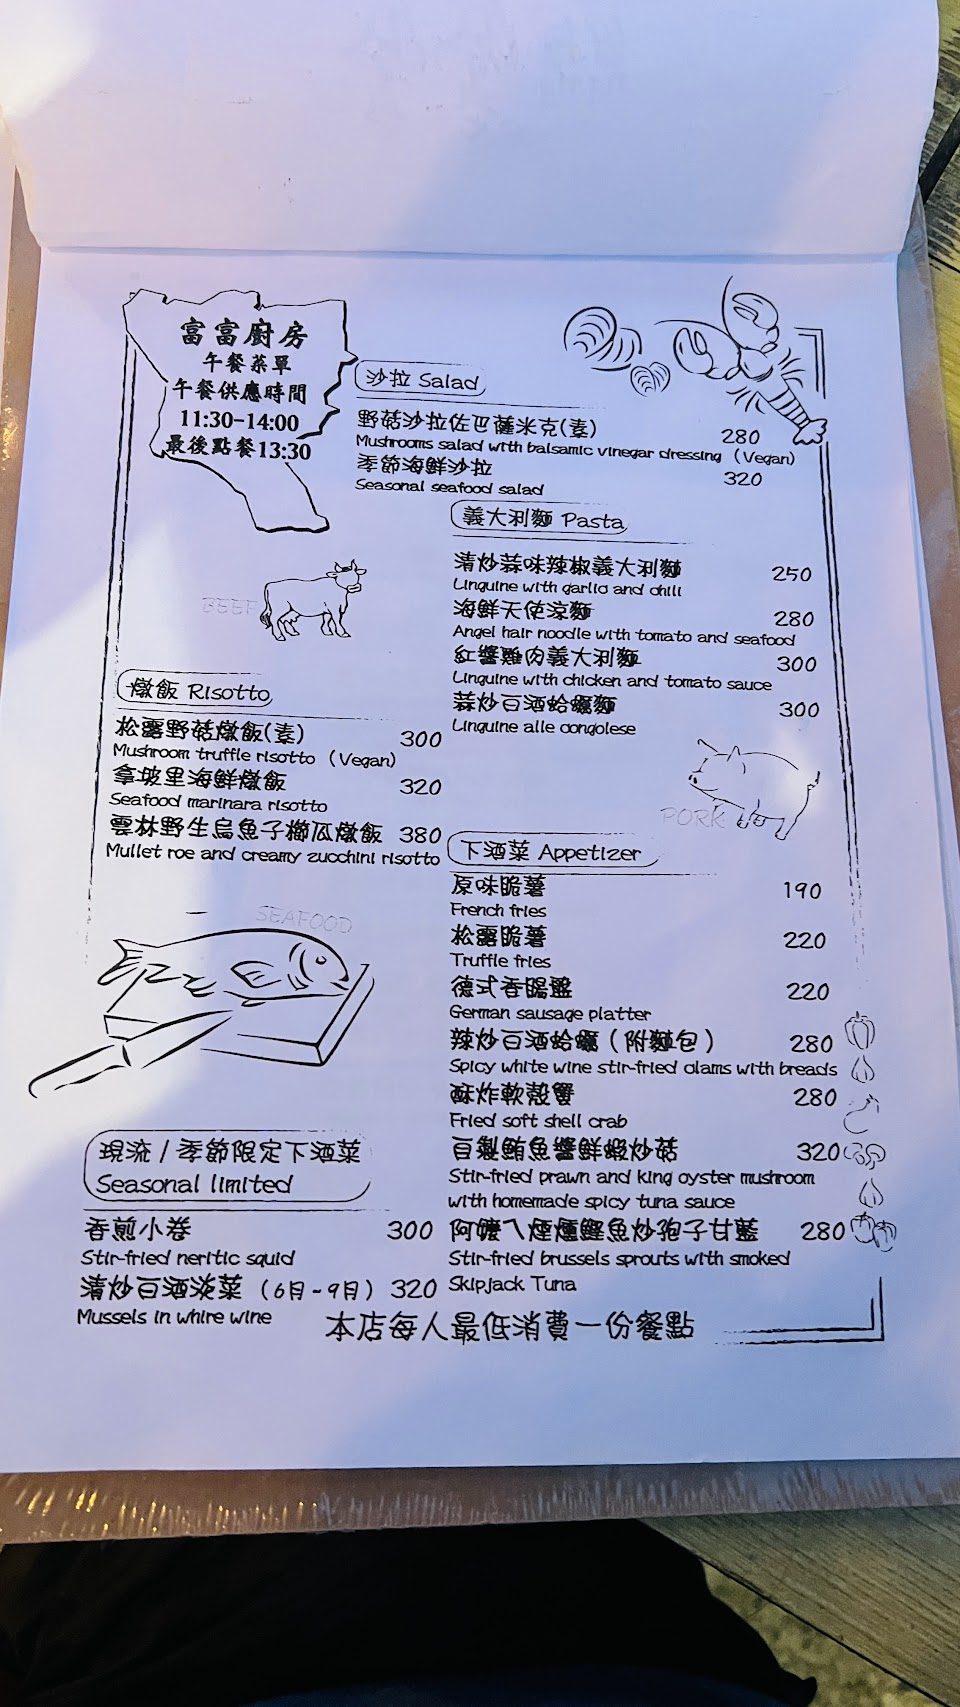 富富廚房
午餐菜單
午餐供應時間
11:30-14:00
最後點餐13:30
沙拉 Salad
野菇沙拉佐巴薩米克(素) 280
Mushrooms salad with balsamic vinegar dressing (Vegan)
季節海鮮沙拉 320
Seasonal seafood salad
義大利麵 Pasta
清炒蒜味辣椒義大利麵 250
Linguine with garlic and chili
海鮮天使涼麵 280
Angel hair noodle with tomato and seafood
紅醬雞肉義大利麵 300
Linguine with chicken and tomato sauce
蒜炒白酒蛤蠣麵 300
Linguine alle congolese
BEEF
燉飯 Risotto
松露野菇燉飯(素) 300
Mushroom truffle risotto (Vegan)
拿坡里海鮮燉飯 320
Seafood marinara risotto
雲林野生烏魚子櫛瓜燉飯 380
Mullet roe and creamy zucchini risotto
PORK
下酒菜 Appetizer
原味脆薯 190
French fries
松露脆薯 220
Truffle fries
德式香腸盤 220
German sausage platter
辣炒白酒蛤蠣(附麵包) 280
Spicy white wine stir-fried clams with breads
酥炸軟殼蟹 280
Fried soft shell crab
自製鮪魚醬鮮蝦炒菇 320
Stir-fried prawn and king oyster mushroom
with homemade spicy tuna sauce
阿嬤ㄟ煙燻鰹魚炒孢子甘藍 280
Stir-fried brussels sprouts with smoked
Skipjack Tuna
SEAFOOD
現流/季節限定下酒菜
Seasonal limited
香煎小卷 300
Stir-fried neritic squid
清炒白酒淡菜(6月-9月) 320
Mussels in whire wine
本店每人最低消費一份餐點